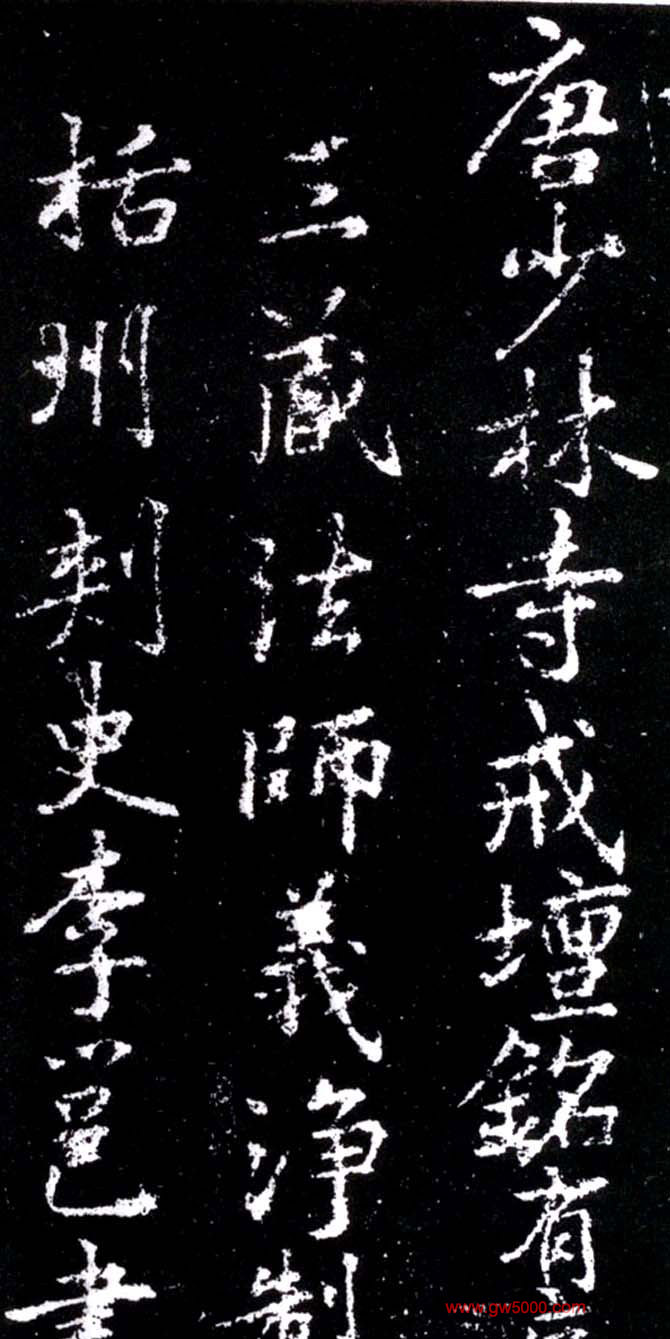 唐少林寺戒壇銘有
三藏法師義淨制
括州刺史李邕書
www.gw5000.com